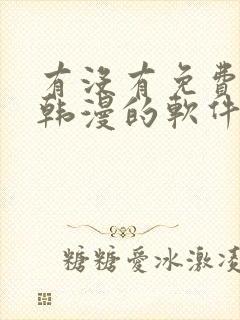 有沒有免費
韩漫的軟件
糖糖愛冰激凌